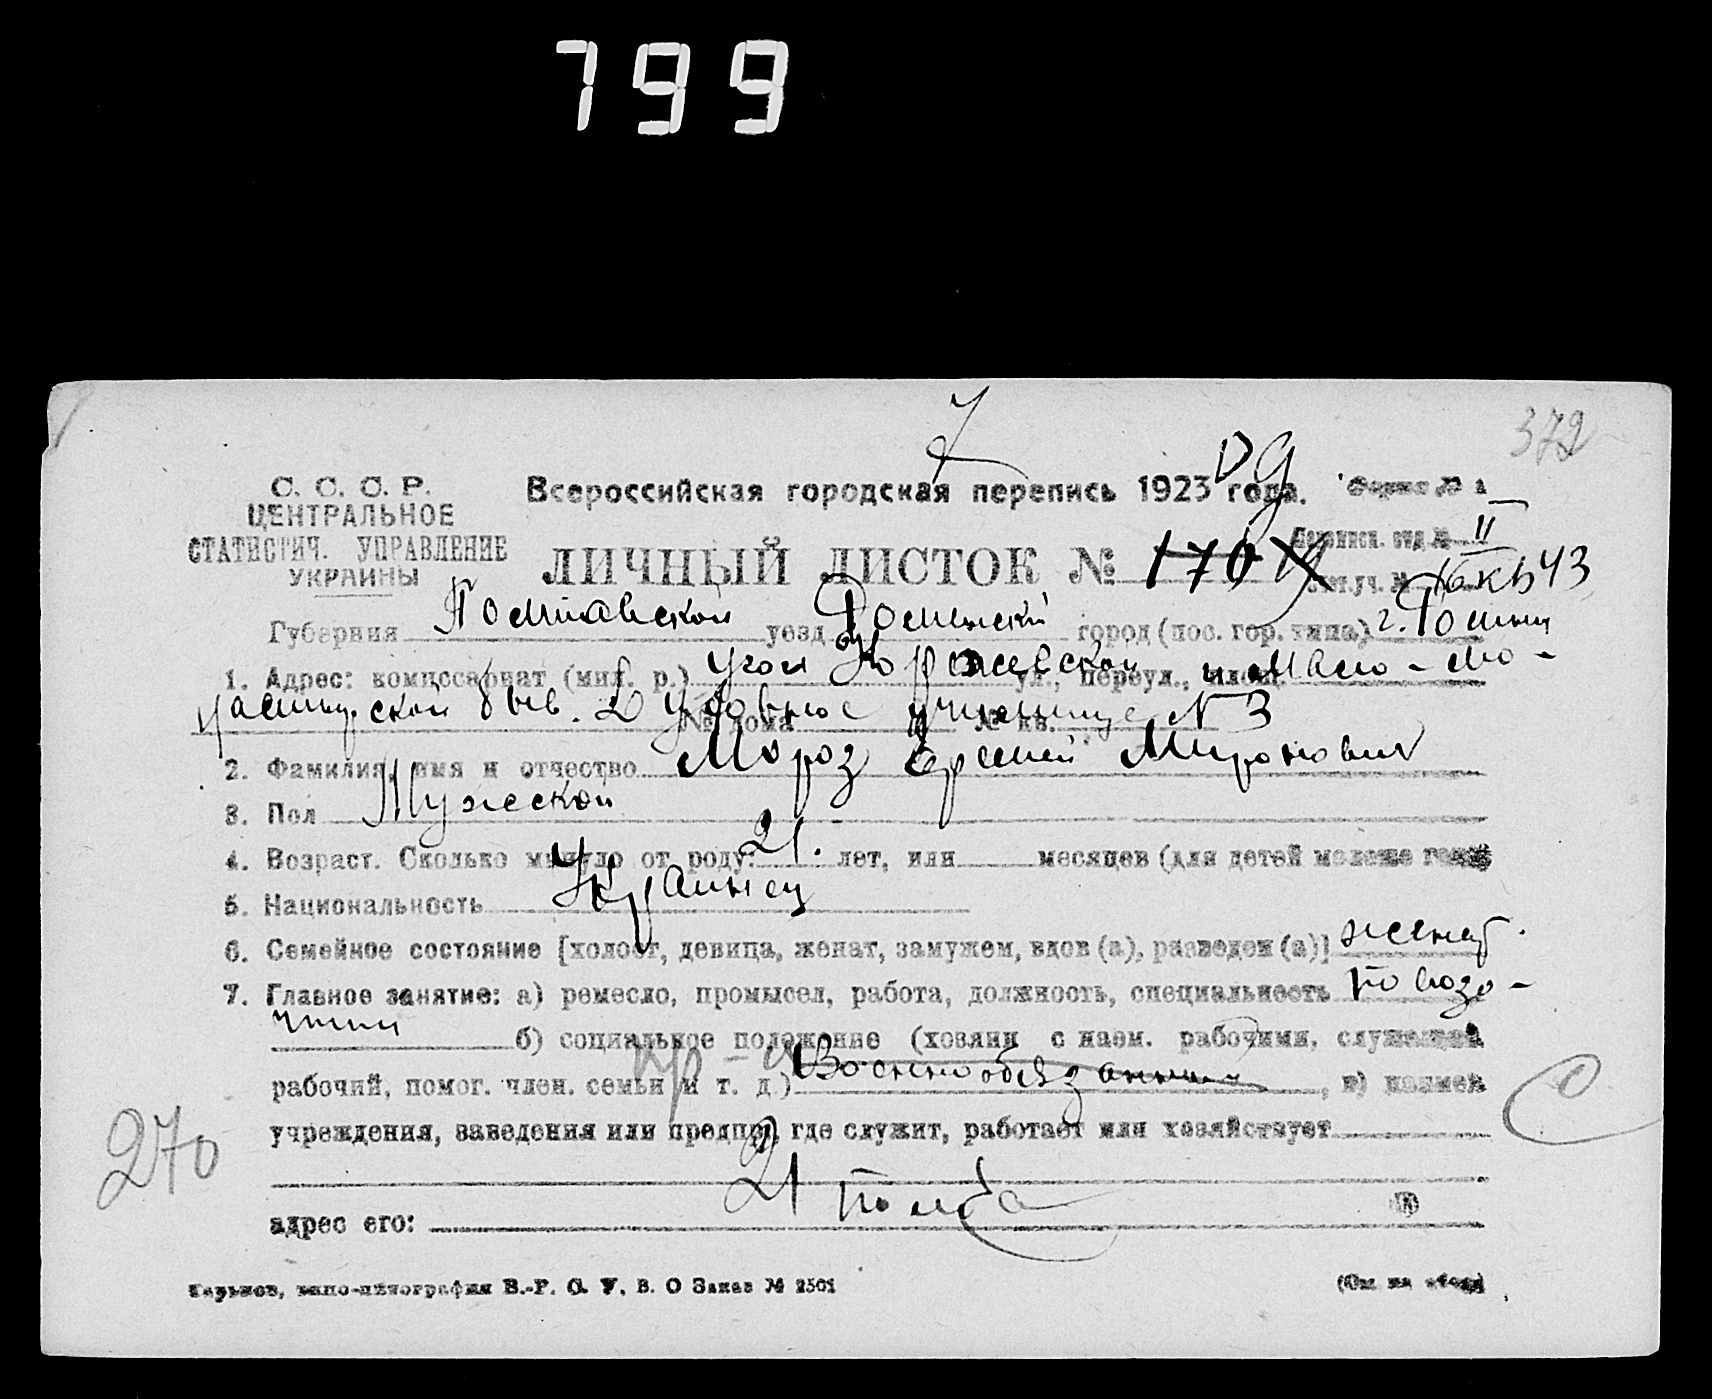 799
372
С. С. С. Р.
ЦЕНТРАЛЬНОЕ
СТАТИСТИЧ. УПРАВЛЕНИЕ
УКРАИНЫ
Всероссийская городская перепись 1923 года. Форма № 1
Переписн. отд. № II
ЛИЧНЫЙ ЛИСТОК № 170
уч. № 43
Губерния Полтавской уезд Роменский город (пос. гор. типа) г. Ромны
1. Адрес: комиссариат (мил. р.) угол ул., переул., площ. и Мало-
быв. Духовное училище № дома № кв. N 3
2. Фамилия, имя и отчество Мороз Еремей Миронович
3. Пол Мужской
4. Возраст. Сколько минуло от роду: 21. лет, или месяцев (для детей моложе года)
5. Национальность Украинец
6. Семейное состояние [холост, девица, женат, замужем, вдов (а), разведен (а)] женат.
7. Главное занятие: а) ремесло, промысел, работа, должность, специальность
б) социальное положение (хозяин с наем. рабочими, служащий
рабочий, помог. член. семьи и т. д.) Военнообязанный, в) наимен.
учреждения, заведения или предпр., где служит, работает или хозяйствует
21 полка
адрес его:
270
С
Харьков, типо-цинография В.-Р. С. У. В. О Заказ № 2501